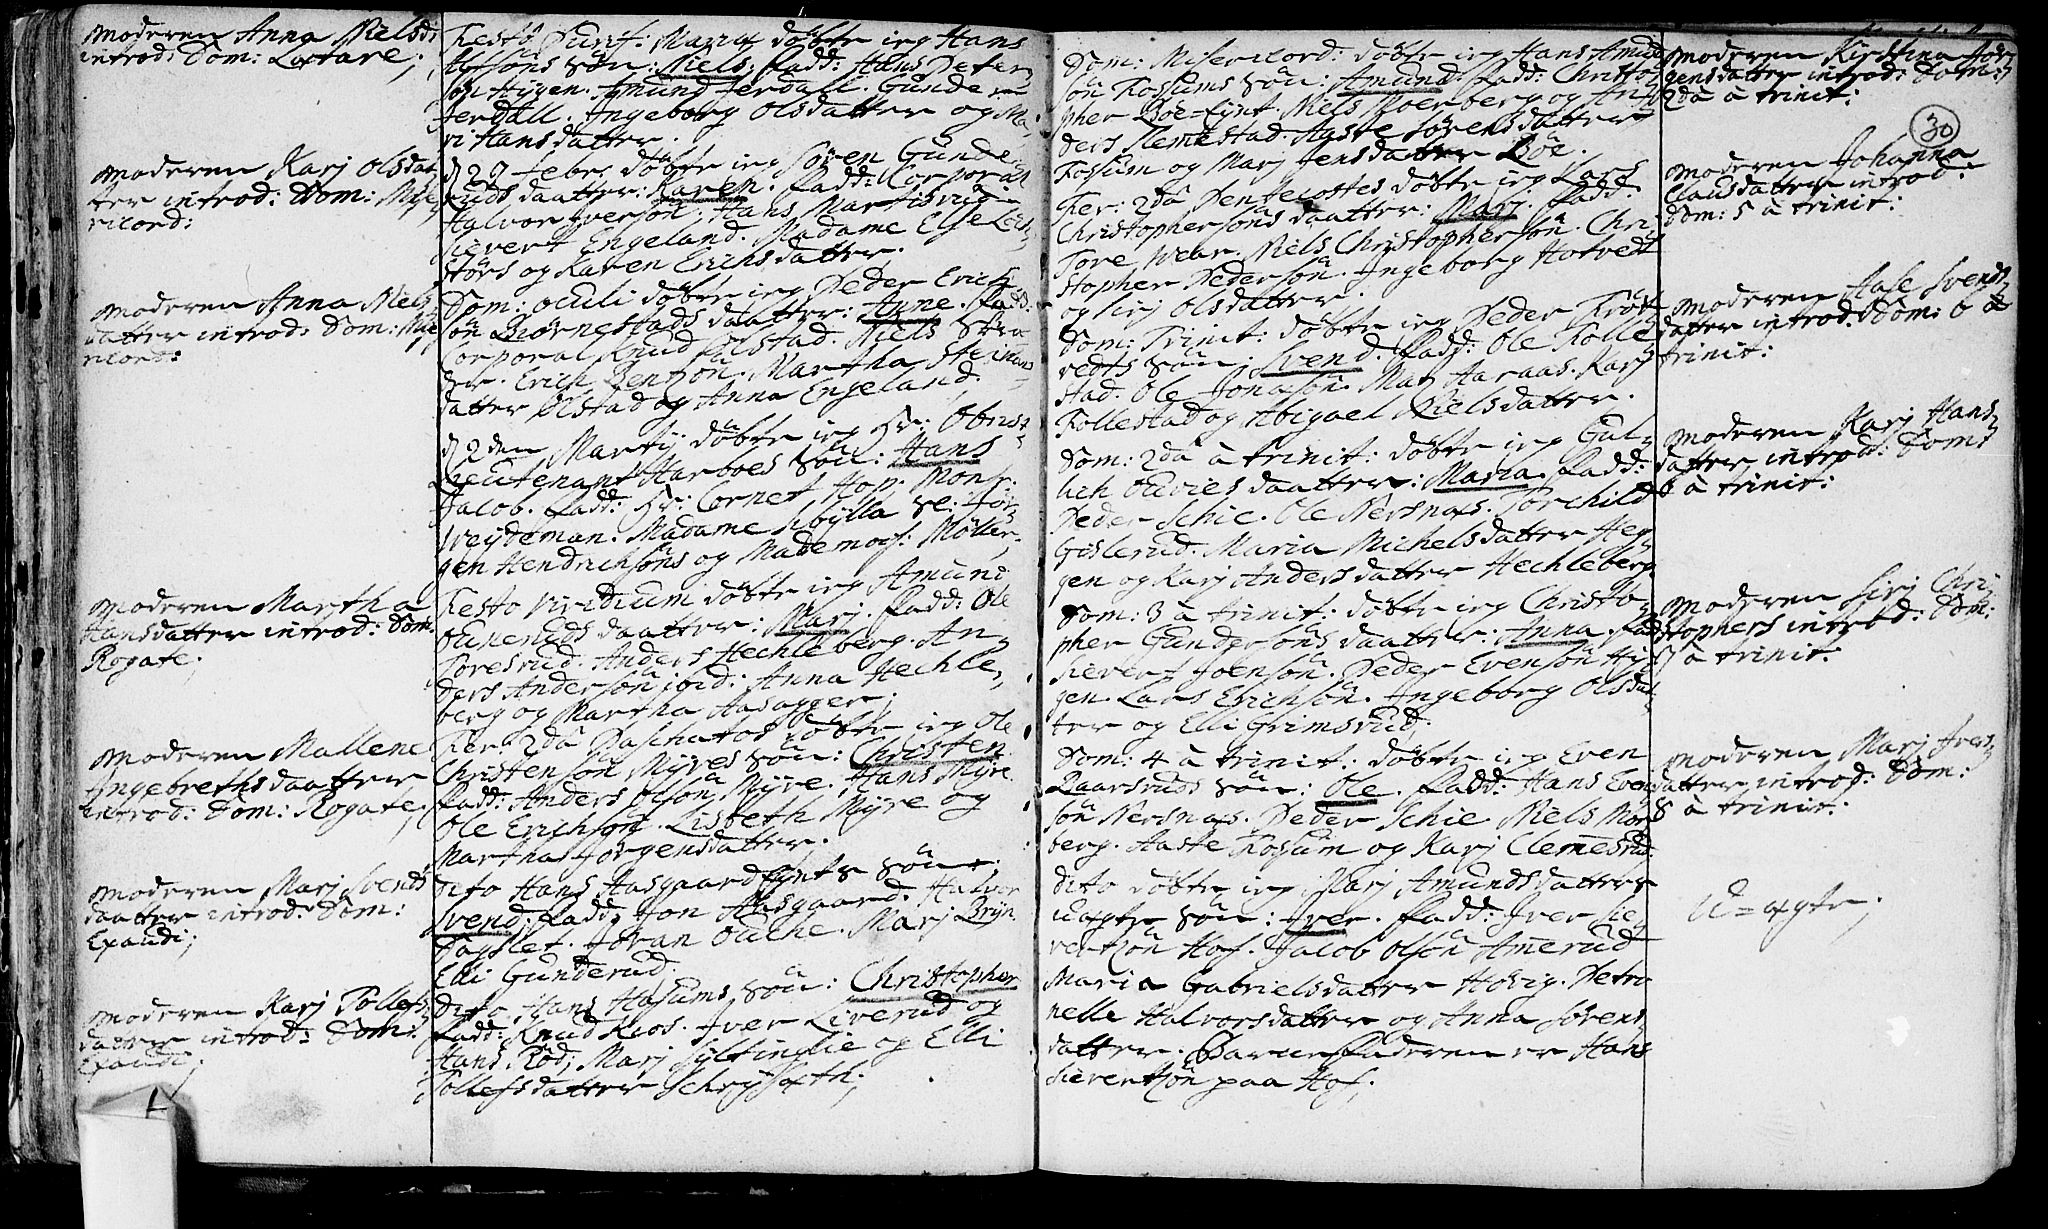 Moderen Anna Nielsd:
introd: Dom: Lætare;
Moderen Karj Olsdat
ter introd: Dom: Mise
ricord:
Moderen Anna Niels
datter introd: Dom: Mise
ricord:
Moderen Martha
Hansdatter introd: Dom.
Rogate;
Moderen Mallene
Ingebrethsdaatter
introd: Dom: Rogate;
Moderen Marj Svends
daatter introd: Dom:
Exaudi;
Moderen Karj Tollefs
datter introd: Dom:
Exaudi;
Festo Purif: Mariæ döbte ieg Hans
söns sön: Niels. fadd: Hans Peter
sön Hÿgen. Amund Jerdall. Gunder
Jerdall. Ingeborg Olsdatter og Ma
ri Hansdatter.
d 29 Febr. döbte ieg Sören Gunde
ruds daatter: Karen. fadd: Corporal
Halvor Iversön. Hans Martisvig
Sievert Engeland. Madame Else Leh
störs og Karen Erichsdatter.
Dom: Oculi döbte ieg Peder Erich
sön Biörnestads daatter: Anne. fadd:
Corporal Knud Olstad. Niels Skra
der. Erich Bentsön. Martha Steinars
datter Olstad og Anna Engeland.
d 2den Martij döbte ieg Hr: Obrist
Lieutenant Harboes Sön: Hans
Jacob. fadd: Hr: Cornet Hop. Monsr.
Weijdeman: Madame Sibÿlla Sl: Jör
gen Hendrichsöns og Mademois: Möller.
Festo Viridium döbte ieg Amund
Ouneruds daatter: Marj. fadd: Ole
Toresrud. Anders Hechleberg. An
ders Andersön ibid: Anna Hechle
berg og Martha Aasagger;
Fer: 2da Paschatos döbte ieg Ole
Christensön Mÿres sön: Christen
fadd: Anders Olsön Mÿre. Hans Mÿre
Ole Erichsön. Lisbeth Mÿre og
Martha Jörgensdatter.
dito Hans Aasgaardeÿnts sön:
Svend, fadd: Jon Aasgaard. Halvor
Dagslet. Jöran Ouche. Marj Brÿn
Elli Gunderud.
dito Hans Hasums sön: Christopher
fadd: Knud Kios. Iver Liverud og
Hans Röd; Marj Sÿltinglie og Elli
Tollefsdatter Schrÿsæth;
30
Dom: Misericord: döbte ieg Hans Amund
sön Fossums sön: Amund. fadd: Christo
pher Böe-Eÿnt. Niels Moerberg og An
ders Slemestad. Aaste Sörensdatter
Fossum og Marj Jensdatter Böe.
Fer: 2da Pentecostes döbte ieg Lars
Christophersöns daatter: Marj. fadd:
Tore Wear. Niels Christophersön. Chri
stopher Pedersön. Ingeborg Hotvedt
og Sirj Olsdatter.
Dom: Trinit: döbte ieg Peder Tröt
vedts sön: Svend. fadd: Ole Tolle
stad. Ole Jonasön. Marj Aaraas. Karj
Follestad og Abigael Nielsdatter.
Dom: 2da à trinit: döbte ieg Gul
lich Ouvies daatter: Maria. fadd:
Peder Schie. Ole Nersnæs. Torchild
Gislerud. Maria Michelsdatter Heg
gen og Karj Andersdatter Hechleberg
Dom: 3 à trinit: döbte ieg Christo
pher Gundersöns daatter: Anna. fad
Sievert Joensön. Peder Evensön Hÿ
gen. Lars Erichsön. Ingeborg Olsdat
ter og Elli Grimsrud;
Dom: 4 à trinit: döbte ieg Even
Baarsruds sön: Ole. fadd: Hans Even
sön Nersnæs. Peder Schie. Niels Mör
berg. Aaste Fossum og Karj Clemesrud.
dito döbte ieg Marj Amundsdatters
uægte sön: Iver. fadd: Iver Sie
vertsön Hof. Jacob Olsön Amerud
Maria Gabrielsdatter Holvig. Petro
nelle Halvorsdatter og Anna Sörens
datter. Barnefaderen er Hans
Sievertsön paa Hof;
Moderen Kirstina Jör
gensdatter introd: Dom:
2da à trinit:
Moderen Johanna
Clausdatter introd:
Dom: 5 à trinit:
Moderen Aase Svends
datter introd: Dom: 6 à
trinit:
Moderen Karj Hans
datter introd: Dom:
6 à trinit:
Moderen Sirj Chri
stophers introd: Dom:
7 à trinit:
Moderen Marj Ivers
datter introd: Dom:
8 à trinit:
U=ægte;